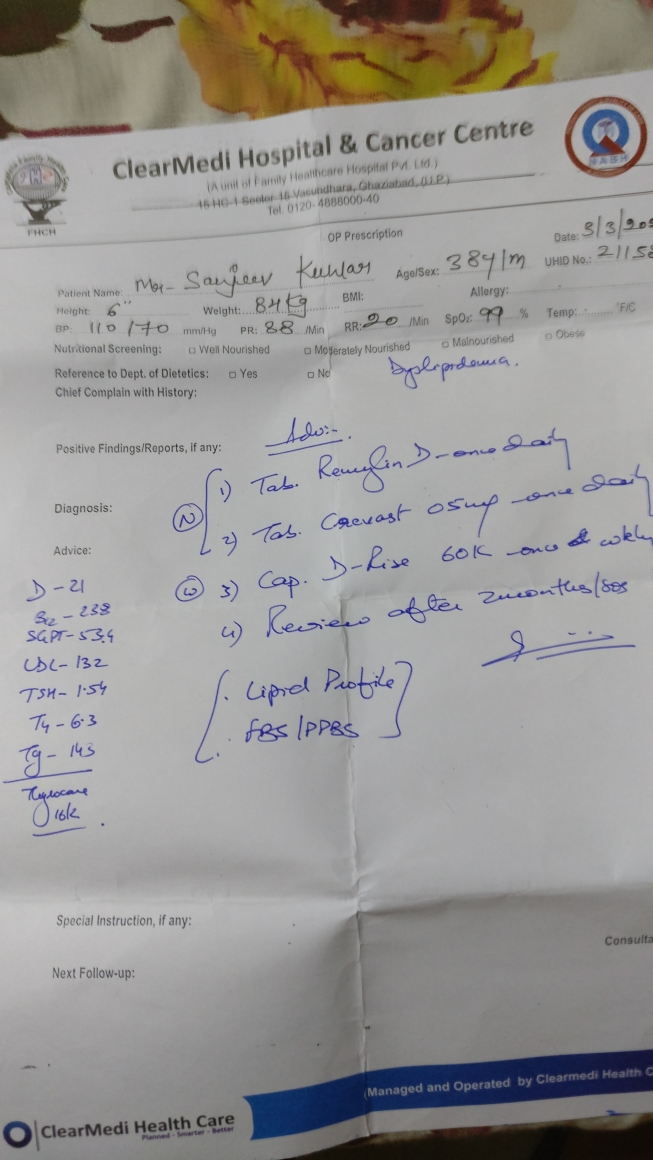 ClearMedi Hospital & Cancer Centre
(A unit of Family Healthcare Hospital Pvt. Ltd.)
16 HG-1 Sector-16 Vasundhara, Ghaziabad, (U.P.)
Tel. 0120- 4888000-40
FHCH
NABH
OP Prescription
Date: 3/3/20
Patient Name: Mr- Sanjeev Kumar Age/Sex: 38y/m UHID No.: 2115
Height: 6" Weight: 84Kg BMI: Allergy:
BP: 110/70 mm/Hg PR: 88 /Min RR: 20 /Min SpO2: 99 % Temp: °F/C
Nutritional Screening: □ Well Nourished □ Moderately Nourished □ Malnourished □ Obese
Reference to Dept. of Dietetics: □ Yes □ No
Dyslipidemia.
Chief Complain with History:
Positive Findings/Reports, if any:
Adv:-
Diagnosis:
(N) 1) Tab. D-once daily
2) Tab. 05mg once daily
Advice:
(W) 3) Cap. D-Rise 60K once wkly
4) Review after 2months/sos
D-21
B12-238
SGPT-53.4
LDL-132
TSH-1.54
T4-6.3
Tg-143
Thyrocare
16k
. Lipid Profile
. FBS/PPBS
Special Instruction, if any:
Consulta
Next Follow-up:
(Managed and Operated by Clearmedi Health C
ClearMedi Health Care
Planned - Smarter - Better